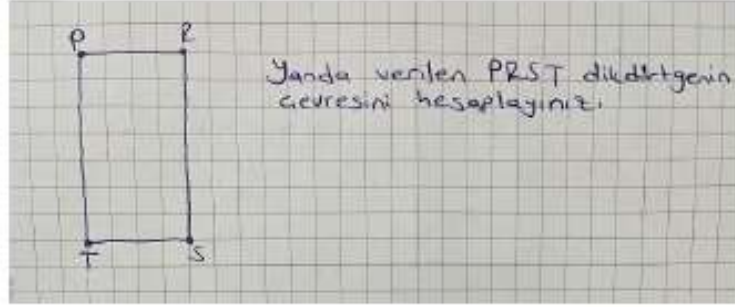 P R
Yanda verilen PRST dikdörtgenin
çevresini hesaplayınız.
T S